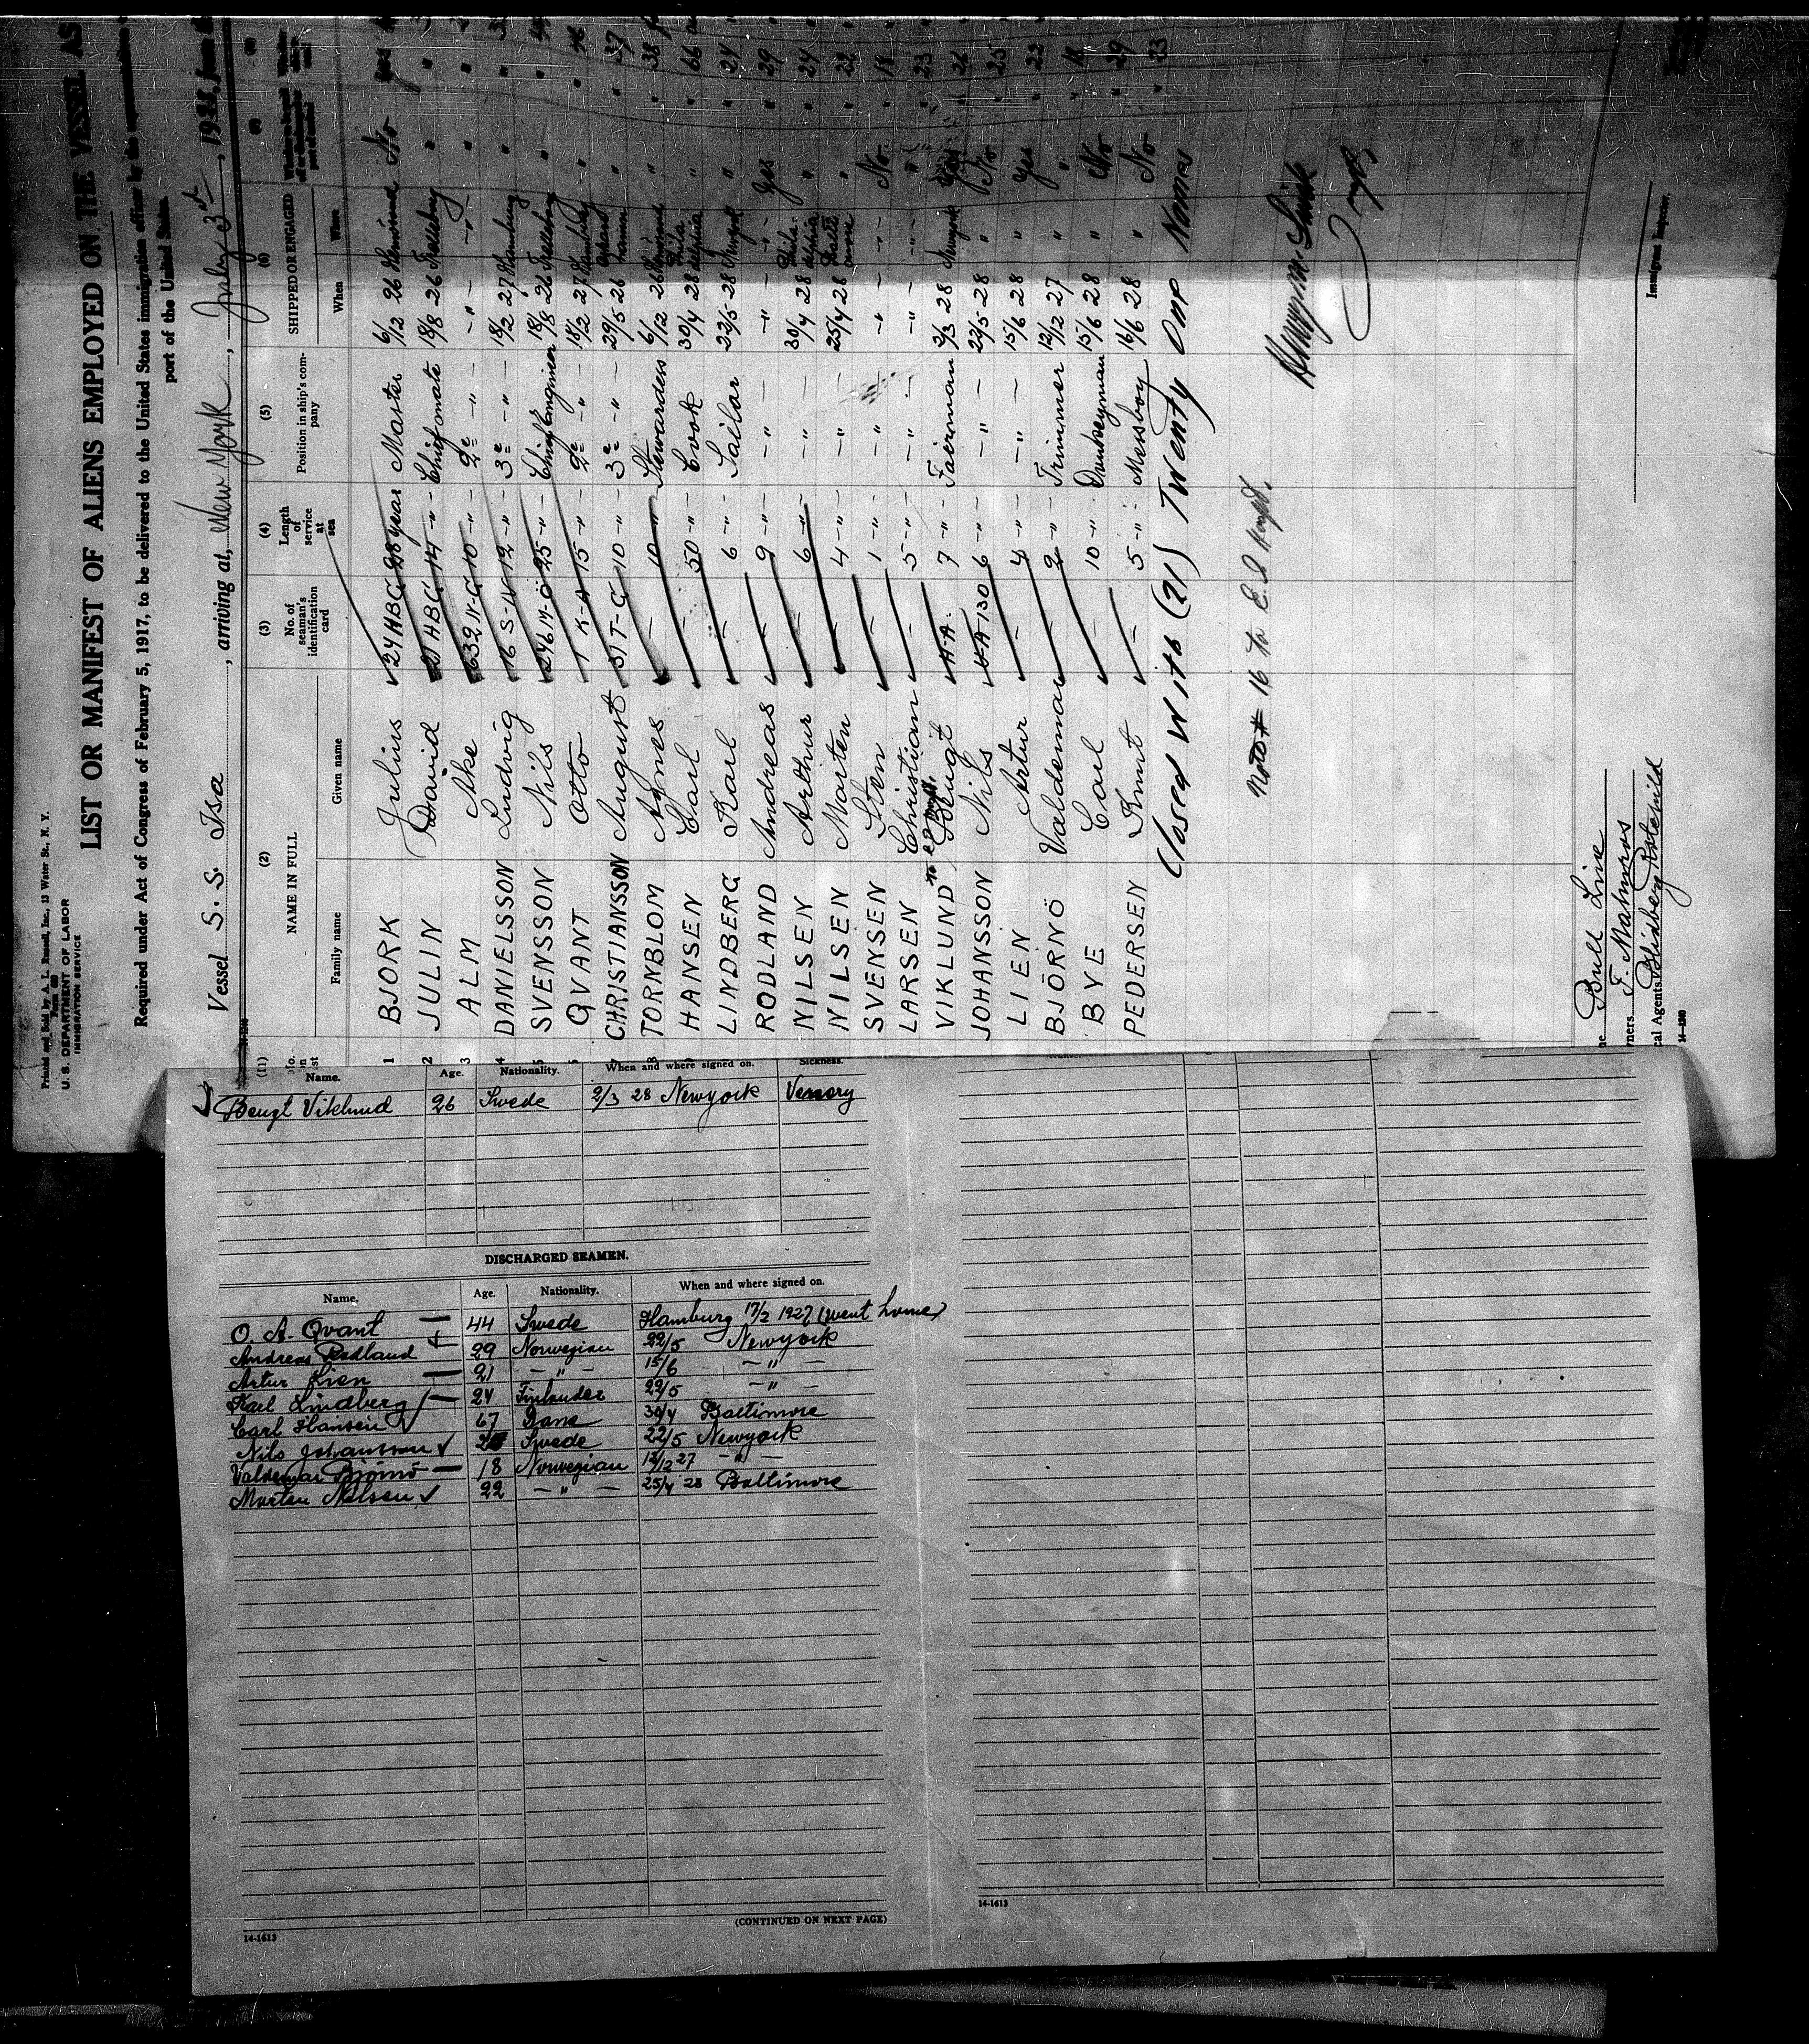 Printed and Sold by A. L. Russell, Inc., 13 Water St., N. Y.
U. S. DEPARTMENT OF LABOR
IMMIGRATION SERVICE
LIST OR MANIFEST OF ALIENS EMPLOYED ON THE VESSEL AS
Required under Act of Congress of February 5, 1917, to be delivered to the United States immigration officer by the representatives
port of the United States
Vessel S. S. Isa, arriving at, New York, July 3rd, 1928, from
(1) (2) (3) (4) (5) (6) (7) (8)
NAME IN FULL
No. of seaman's identification card
Length of service at sea
Position in ship's company
SHIPPED OR ENGAGED
Family name Given name When Where
1 BJORK Julius 24 HBG 28 years Master 6/12 26 No yes
2 JULIN David 21 HBG 14 -"- Chief mate 18/8 26 Trelleborg " "
3 ALM Ake 632 N-G 10 -"- 2e -"- -"- -"- " "
4 DANIELSSON Ludvig 16 S-N 12 -"- 3e -"- 18/2 27 Hamburg " "
5 SVENSSON Nils 246 N-Ö 25 -"- Chief Engineer 18/8 26 Trelleborg " "
6 QVANT Otto 1 K-A 15 -"- 2e -"- 18/2 27 Hamburg " " 46
7 CHRISTIANSSON August 31 T-G 10 -"- 3e -"- 29/5 26 " " 37
8 TORNBLOM Agnes - 10 -"- Stewardess 6/12 26 " " 38
9 HANSEN Carl - 50 -"- Cook 30/4 28 Philadelphia " " 66
LINDBERG Karl - 6 -"- Sailor 22/5 28 Newyork " " 24
RODLAND Andreas - 9 -"- -"- -"- -"- Yes " 29
NILSEN Arthur - 6 -"- -"- 30/4 28 Philadelphia " " 24
NILSEN Marten - 4 -"- -"- 25/4 28 " " 22
SVENSEN Sten - 1 -"- -"- -"- -"- No " 18
LARSEN Christian - 5 -"- -"- -"- -"- " " 23
VIKLUND Bengt HA- 7 -"- Faierman 2/3 28 Newyork Yes " 26
JOHANSSON Nils HA 130 6 -"- -"- 22/5 28 " No " 25
LIEN Artur - 4 -"- -"- 15/6 28 " Yes " 22
BJÖRNÖ Valdemar - 2 -"- Trimmer 12/12 27 " " " 18
BYE Carl - 10 -"- Dunkeyman 15/6 28 " No " 29
PEDERSEN Knut - 5 -"- Messboy 16/6 28 " No " 23
Closed With (21) Twenty One Names
Note # 16 to E.I Hospt.
Bull Line
T. Malmros
cal Agents
Immigrant Inspector.
14-1240
Name. Age. Nationality. When and where signed on. Sickness.
Bengt Viklund 26 Swede 2/3 28 Newyork Venery
DISCHARGED SEAMEN.
Name. Age. Nationality. When and where signed on.
O. A. Qvant 44 Swede Hamburg 17/2 1927 (went home)
Andreas Rodland 29 Norwegian 22/5 Newyork
Artur Lien 21 -"- 15/6 -"-
Karl Lindberg 24 Finlander 22/5 -"-
Carl Hansen 67 Dane 30/4 Baltimore
Nils Johansson Swede 22/5 Newyork
Valdemar Bjornö 18 Norwegian 12/12 27 -"-
Marten Nilsen 22 -"- 25/4 28 Baltimore
(CONTINUED ON NEXT PAGE)
14-1613
14-1613